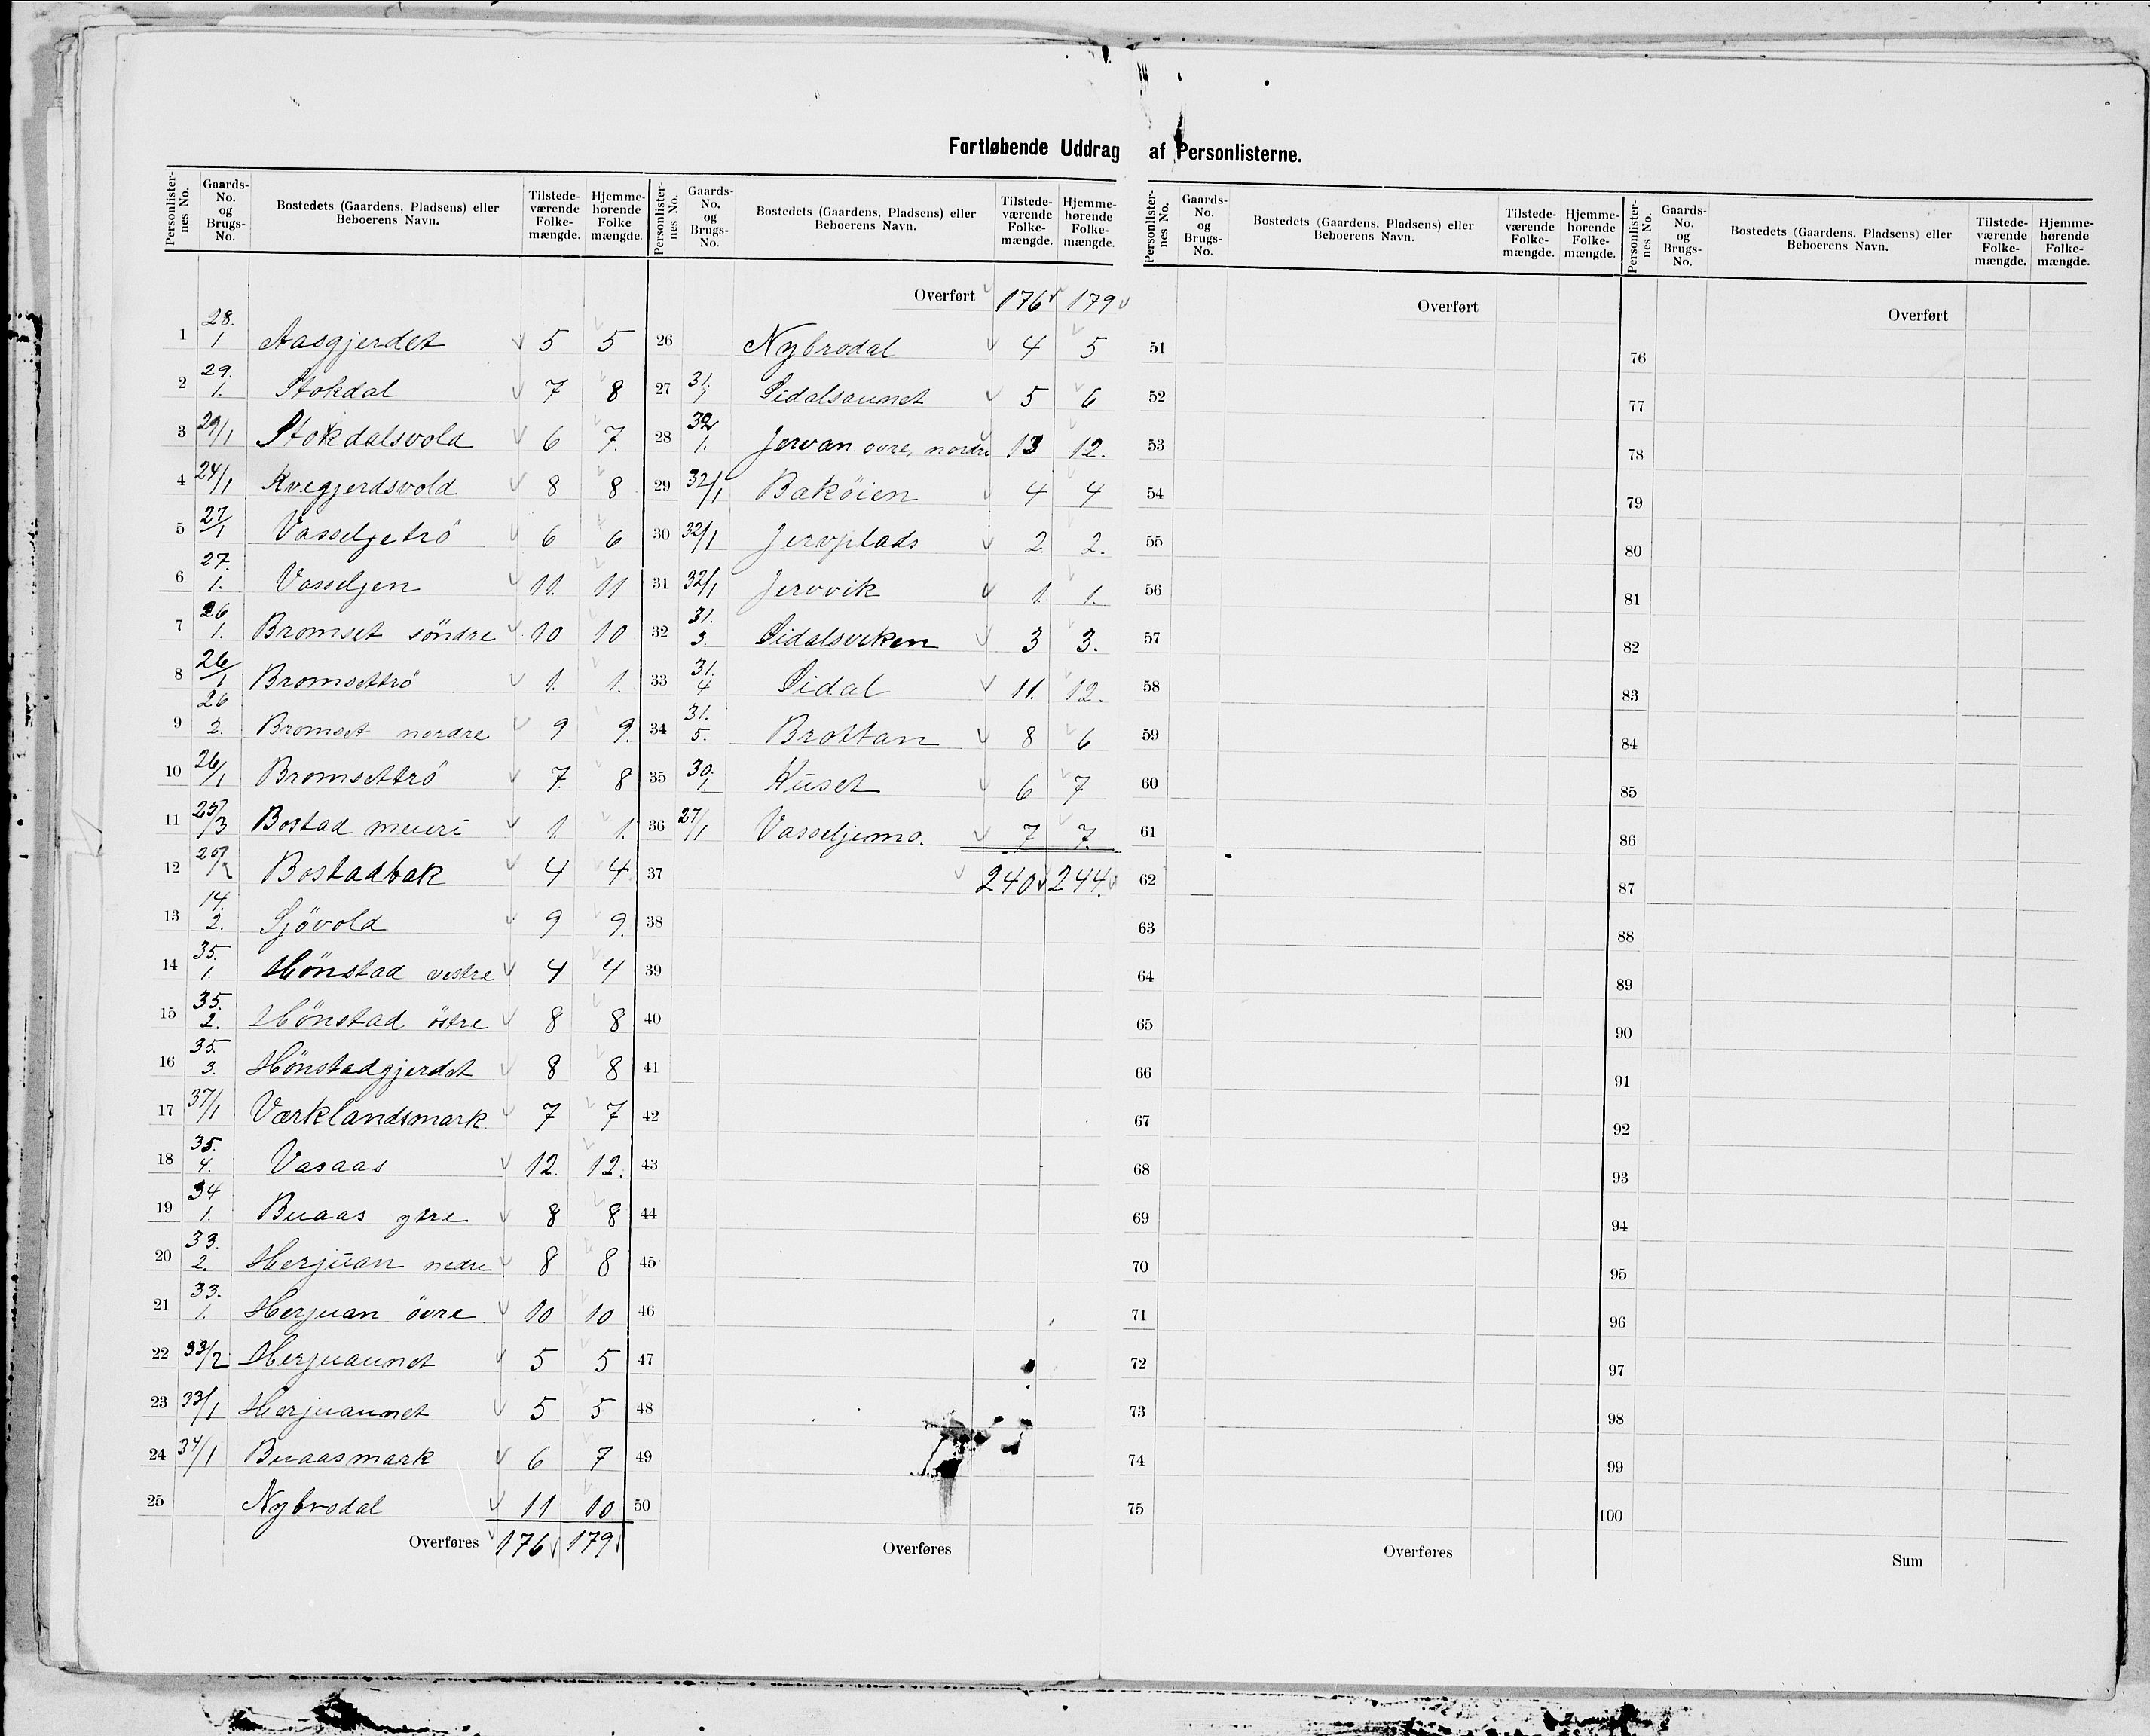 Fortløbende Uddrag af Personlisterne.
Personlister-nes No. | Gaards-No. og Brugs-No. | Bostedets (Gaardens, Pladsens) eller Beboerens Navn. | Tilstede-værende Folke-mængde. | Hjemme-hørende Folke mængde.
1 28. 1 Aasgjerdet 5 5
2 29. 1. Stokdal 7 8
3 29/1 Stokdalsvold 6 7.
4 24/1 Kvegjerdsvold 8 8
5 27/1 Vasseljetrö 6 6
6 27. 1. Vasseljen 11. 11
7 26 1. Bromset söndre 10 10
8 26/1 Bromsettrö 1. 1.
9 26 2. Bromset nordre 9 9.
10 26/1 Bromsettrö 7. 8
11 25/3 Bostad meieri 1. 1.
12 25/2 Bostadbak 4 4
13 14. 2. Sjövold 9 9.
14 35. 1. Hönstad vestre 4 4
15 35. 2. Hönstad östre 8 8
16 35. 3. Hönstadgjerdet 8 8
17 37/1 Værklandsmark 7 7
18 35. 4. Vasaas 12. 12.
19 34 1. Buaas ytre 8 8
20 33. 2. Herjuan nedre 8 8
21 33. 1. Herjuan övre 10 10
22 33/2 Herjuaunet 5 5
23 33/1 Herjuaunet 5 5
24 34/1 Buaasmark 6 7
25 Nybrodal 11 10
Overføres 176 179
Personlister-nes No. | Gaards-No. og Brugs-No. | Bostedets (Gaardens, Pladsens) eller Beboerens Navn. | Tilstede-værende Folke-mængde. | Hjemme-hørende Folke-mængde.
Overført 176 179
26 Nybrodal 4 5
27 31. 1 Sidalsaunet 5 6
28 32 1. Jervan ovre, nordre 13 12.
29 32/1 Baköien 4 4
30 32/1 Jervplads 2. 2.
31 32/1 Jervvik 1. 1.
32 31. 3. Sidalsviken 3 3.
33 31. 4 Sidal 11. 12.
34 31. 5. Brottan 8 6
35 30. 1. Kuset 6 7
36 27/1 Vasseljemo. 7 7.
37 240 244.
38
39
40
41
42
43
44
45
46
47
48
49
50
Overføres
Personlister-nes No. | Gaards-No. og Brugs-No. | Bostedets (Gaardens, Pladsens) eller Beboerens Navn. | Tilstede-værende Folke-mængde. | Hjemme-hørende Folke-mængde.
Overført
51
52
53
54
55
56
57
58
59
60
61
62
63
64
65
66
67
68
69
70
71
72
73
74
75
Overføres
Personlister-nes No. | Gaards-No. og Brugs-No. | Bostedets (Gaardens, Pladsens) eller Beboerens Navn. | Tilstede-værende Folke-mængde. | Hjemme-hørende Folke-mængde.
Overført
76
77
78
79
80
81
82
83
84
85
86
87
88
89
90
91
92
93
94
95
96
97
98
99
100
Sum